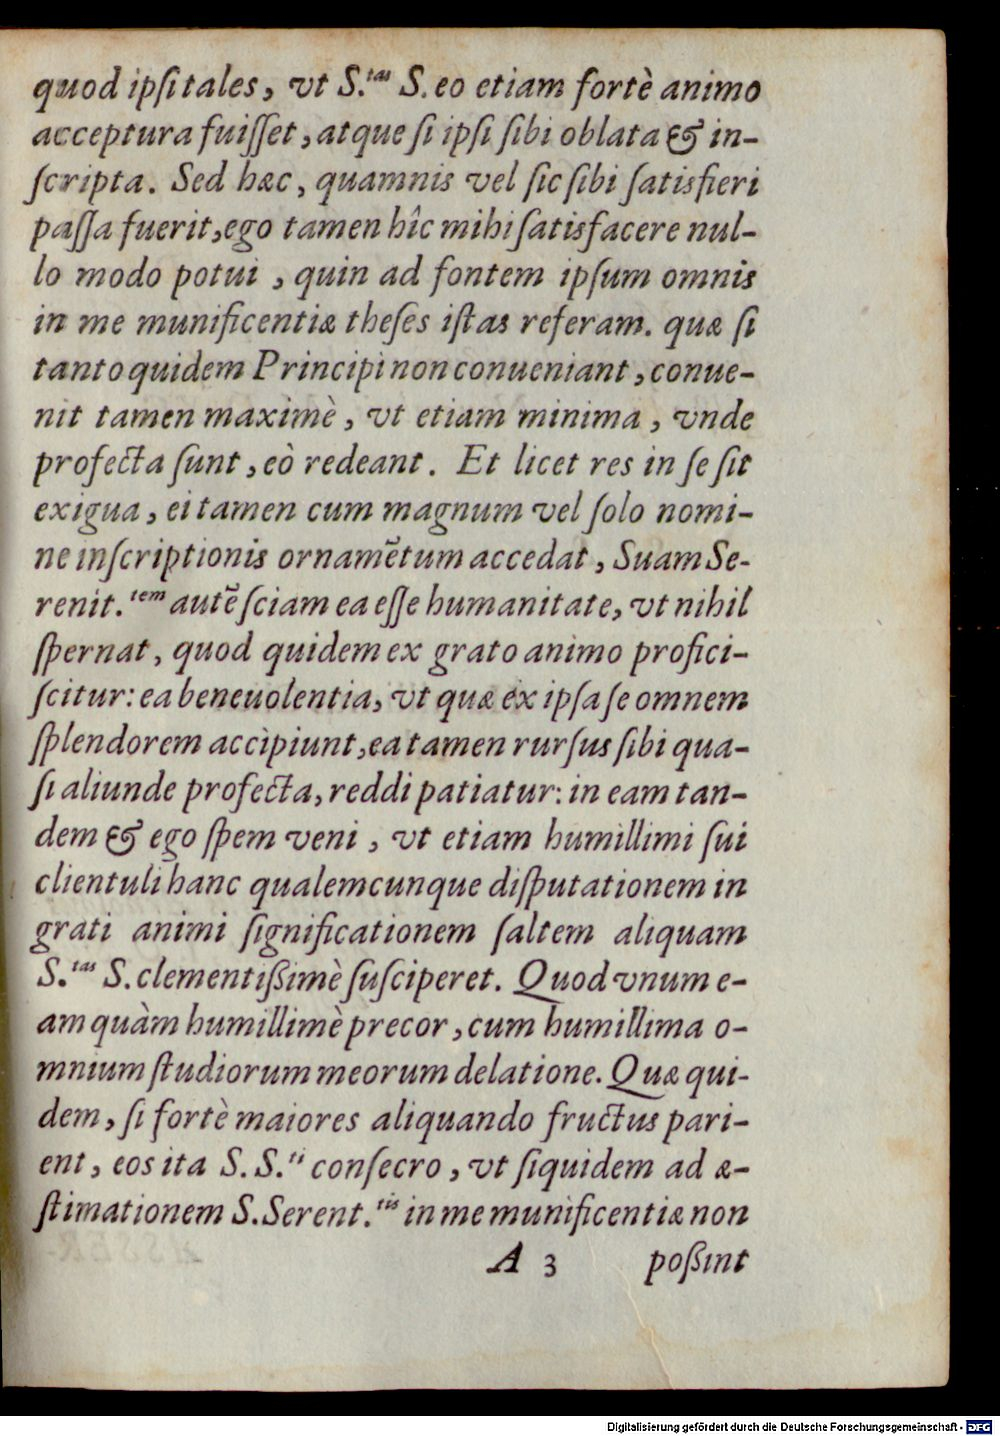 quod ipſi tales, vt S.tas S. eo etiam fortè animo
acceptura fuiſſet, atque ſi ipſi ſibi oblata & in-
ſcripta. Sed hæc, quamnis vel ſic ſibi ſatisfieri
paſſa fuerit, ego tamen hîc mihi ſatisfacere nul-
lo modo potui, quin ad fontem ipſum omnis
in me munificentiæ theſes iſtas referam. quæ ſi
tanto quidem Principi non conueniant, conue-
nit tamen maximè, vt etiam minima, vnde
profecta ſunt, eò redeant. Et licet res in ſe ſit
exigua, ei tamen cum magnum vel ſolo nomi-
ne inſcriptionis ornamētum accedat, Suam Se-
renit.tem autē ſciam ea eſſe humanitate, vt nihil
ſpernat, quod quidem ex grato animo profici-
ſcitur: ea beneuolentia, vt quæ ex ipſa ſe omnem
ſplendorem accipiunt, ea tamen rurſus ſibi qua-
ſi aliunde profecta, reddi patiatur: in eam tan-
dem & ego ſpem veni, vt etiam humillimi ſui
clientuli hanc qualemcunque diſputationem in
grati animi ſignificationem ſaltem aliquam
S.tas S. clementißimè ſuſciperet. Quod vnum e-
am quàm humillimè precor, cum humillima o-
mnium ſtudiorum meorum delatione. Quæ qui-
dem, ſi fortè maiores aliquando fructus pari-
ent, eos ita S. S.ti conſecro, vt ſiquidem ad æ-
ſtimationem S. Serent.tis in me munificentiæ non
A 3 poßint
Digitalisierung gefördert durch die Deutsche Forschungsgemeinschaft - DFG